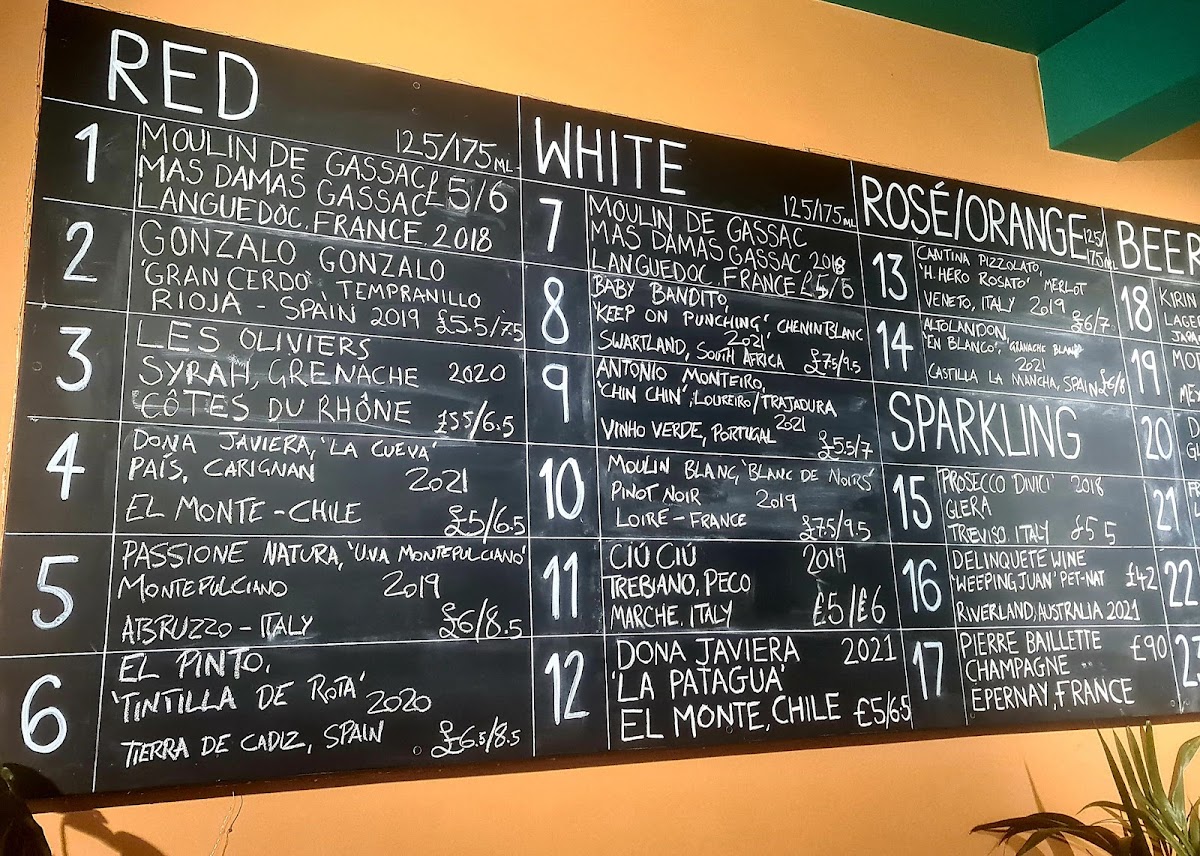 RED
125/175ML
1
MOULIN DE GASSAC
MAS DAMAS GASSAC £5/6
LANGUEDOC, FRANCE, 2018
2
GONZALO GONZALO
'GRAN CERDO' TEMPRANILLO
RIOJA - SPAIN 2019 £5.5/7.5
3
LES OLIVIERS
SYRAH, GRENACHE 2020
CÔTES DU RHÔNE £5.5/6.5
4
DONA JAVIERA, 'LA CUEVA'
PAÍS, CARIGNAN 2021
EL MONTE - CHILE £5/6.5
5
PASSIONE NATURA, 'UVA MONTEPULCIANO'
MONTEPULCIANO 2019
ABRUZZO - ITALY £6/8.5
6
EL PINTO,
'TINTILLA DE ROTA' 2020
TIERRA DE CADIZ, SPAIN £6.5/8.5
WHITE
125/175ML
7
MOULIN DE GASSAC
MAS DAMAS GASSAC 2018
LANGUEDOC, FRANCE £5/6
8
BABY BANDITO,
'KEEP ON PUNCHING' CHENIN BLANC
2021
SWARTLAND, SOUTH AFRICA £7.5/9.5
9
ANTONIO MONTEIRO,
'CHIN CHIN', LOUREIRO/TRAJADURA
2021
VINHO VERDE, PORTUGAL £5.5/7
10
MOULIN BLANC, 'BLANC DE NOIRS'
PINOT NOIR 2019
LOIRE - FRANCE £7.5/9.5
11
CIÚ CIÚ 2019
TREBIANO, PECO
MARCHE, ITALY £5/£6
12
DONA JAVIERA 2021
'LA PATAGUA'
EL MONTE, CHILE £5/6.5
ROSÉ/ORANGE
125/
175ML
13
CANTINA PIZZOLATO,
'H.HERO ROSATO' MERLOT
VENETO, ITALY 2019
£6/7
14
ALTOLANDON
'EN BLANCO', GRENACHE BLANC
2021
CASTILLA LA MANCHA, SPAIN £6/8
SPARKLING
15
PROSECCO DIVICI' 2018
GLERA
TREVISO, ITALY £5.5
16
DELINQUETE WINE
'WEEPING JUAN' PET-NAT £42
RIVERLAND, AUSTRALIA 2021
17
PIERRE BAILLETTE £90
CHAMPAGNE
EPERNAY, FRANCE
BEER
18
KIRIN
LAGER
JAPA
19
MO
ME
20
21
22
23